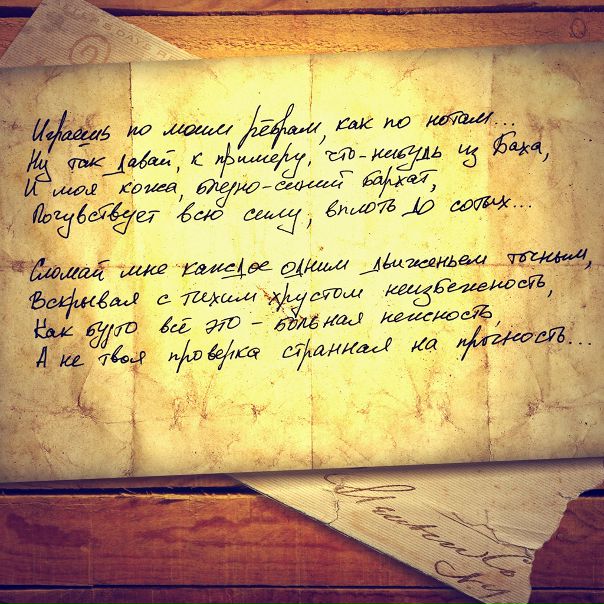 Играешь по моим рёбрам, как по нотам...
Ну так давай, к примеру, что-нибудь из Баха,
И моя кожа, бледно-синий бархат,
Почувствует всю силу, вплоть до сотых...
Сломай мне каждое одним движеньем точным,
Вскрывая с тихим хрустом неизбежность,
Как будто всё это - больная нежность,
А не твоя проверка странная на прочность...